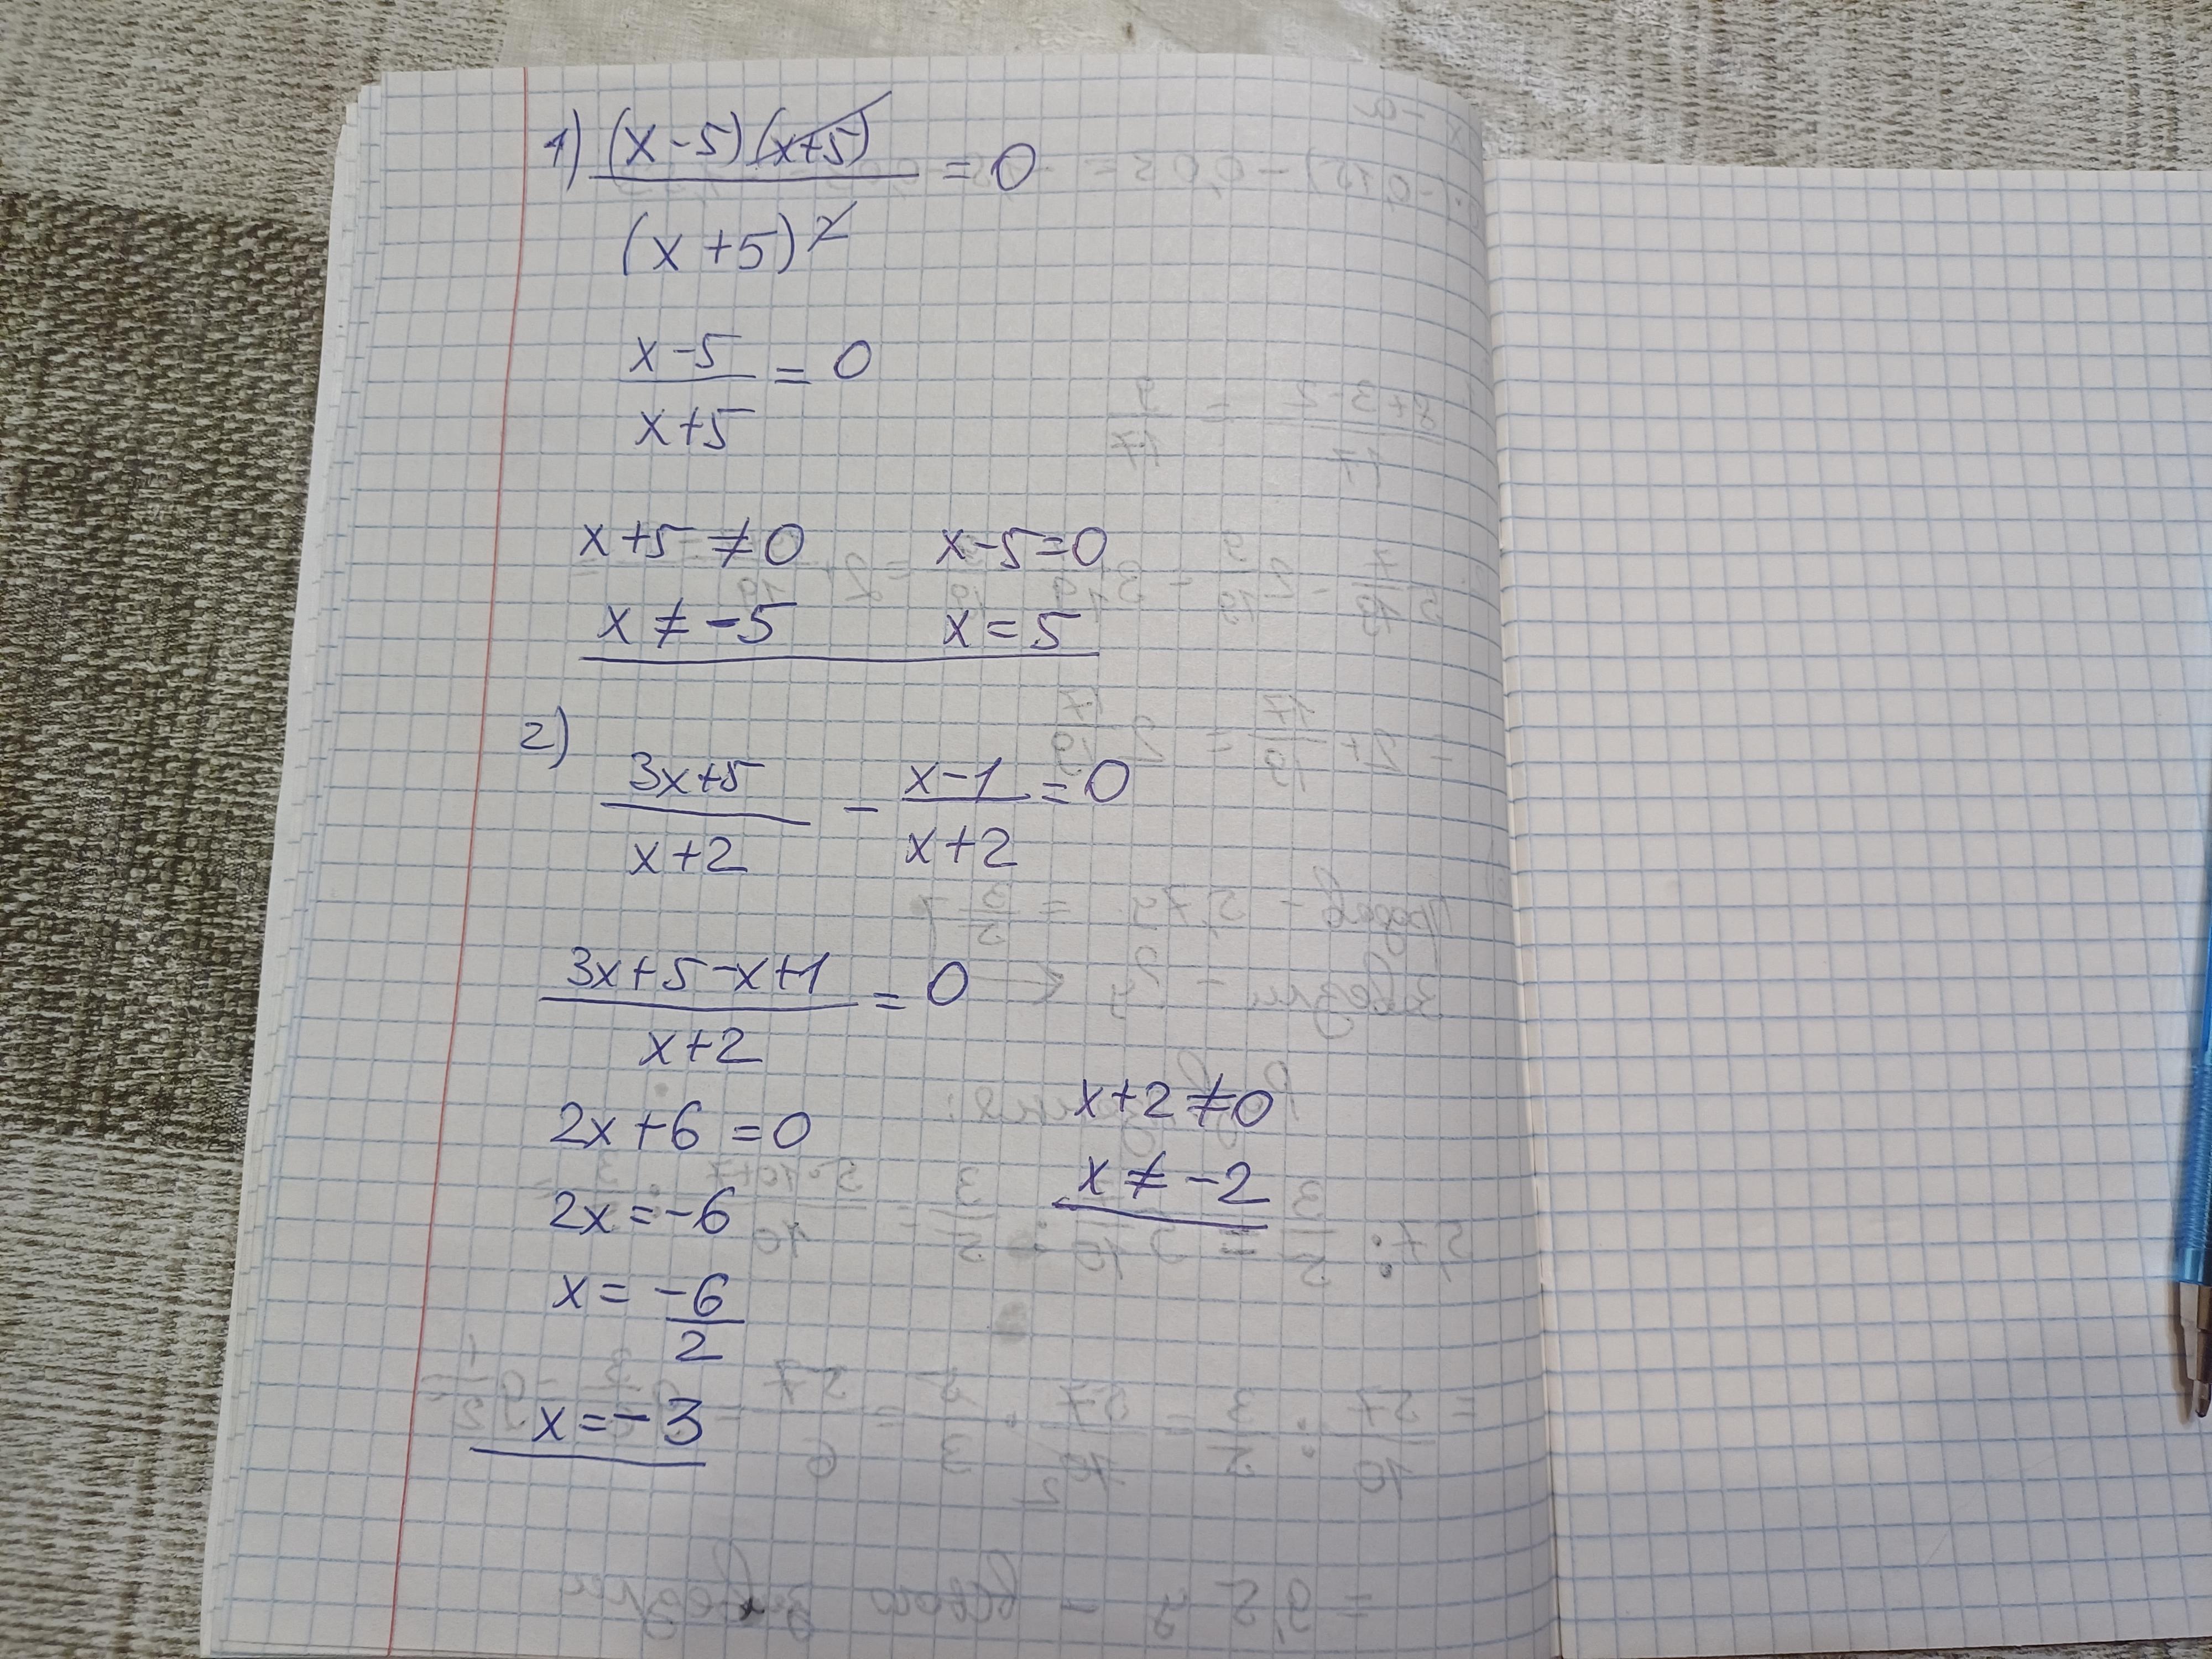 1) (x-5)(x+5) / (x+5)² = 0
x-5 / x+5 = 0
x+5 ≠ 0    x-5=0
x ≠ -5    x = 5
2) 3x+5 / x+2 - x-1 / x+2 = 0
3x+5-x+1 / x+2 = 0
2x+6 = 0    x+2 ≠ 0
2x = -6    x ≠ -2
x = -6 / 2
x = -3